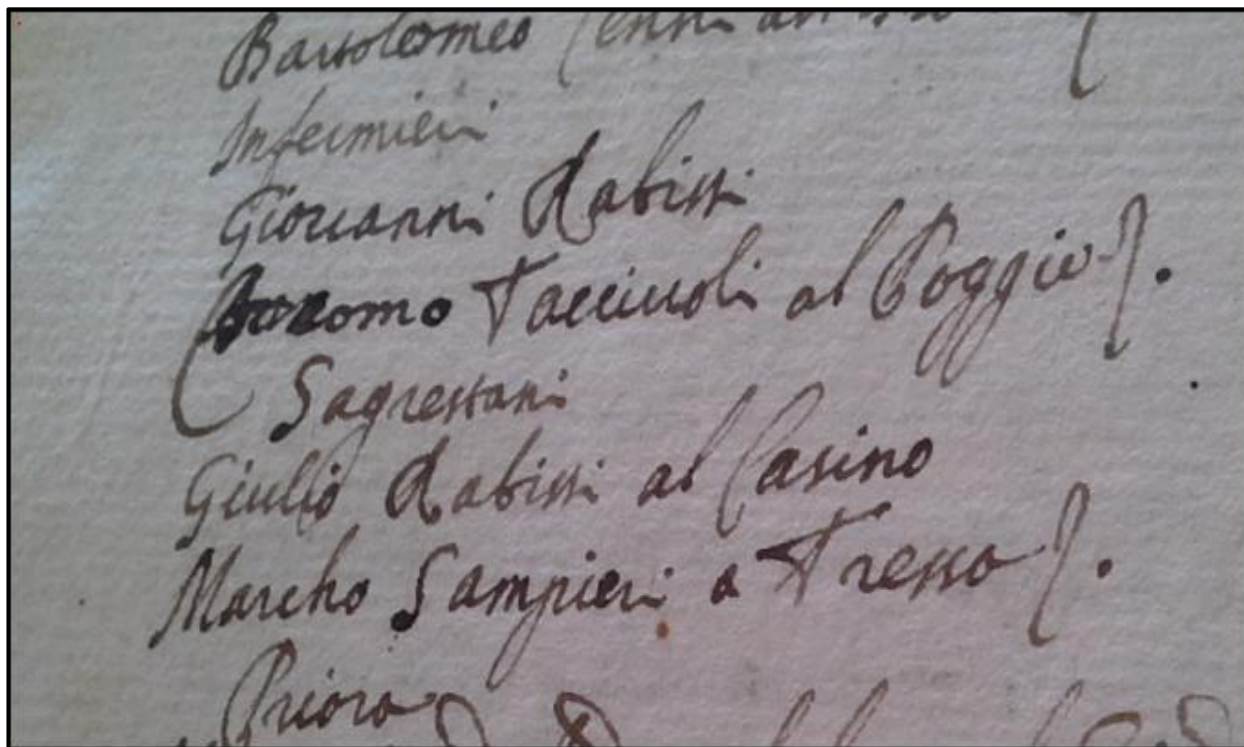 Bartolomeo
Infermieri
Giovanni Rabissi
Giacomo Tacciuoli al Poggio
Sagrestani
Giulio Rabissi al Casino
Marcho Sampieri a Tressa
Priora